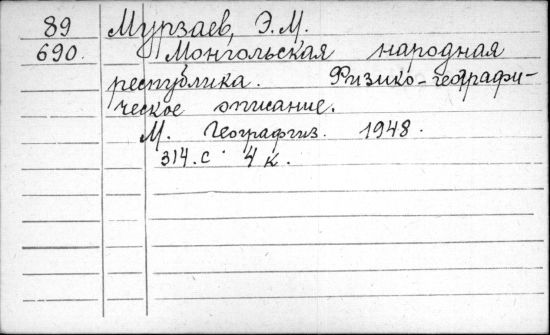 89 Мурзаев, Э.М.
690. Монгольская народная
республика. Физико-географи-
ческое описание.
М. Географгиз. 1948.
314.с 4 к.